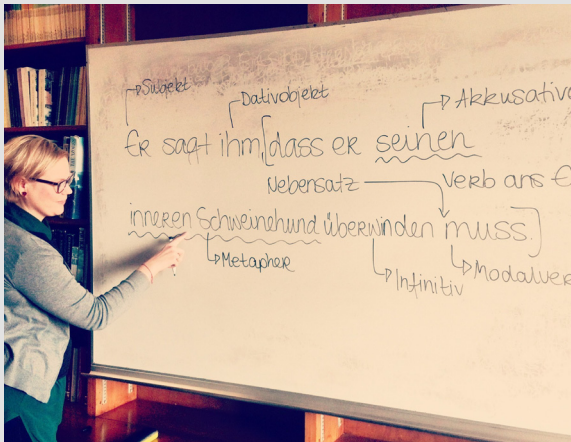 Subjekt
Dativobjekt
Akkusativo
Er sagt ihm, [dass er seinen
Nebensatz
Verb ans E
inneren Schweinehund überwinden muss.]
Metapher
Infinitiv
Modalver